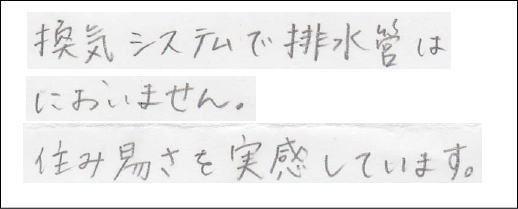 換気システムで排水管は
においません。
住み易さを実感しています。